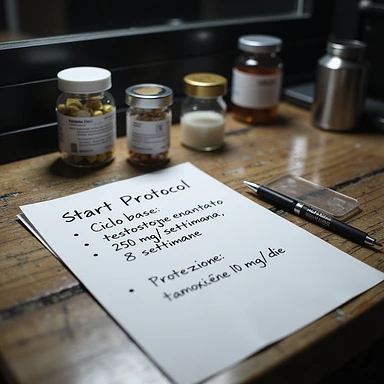 Start Protocol
• Ciclo base:
testostoje enantato
• 250 mg/settimana,
• 8 settimane
• Protezione:
tamoxiéne 10 mg/die